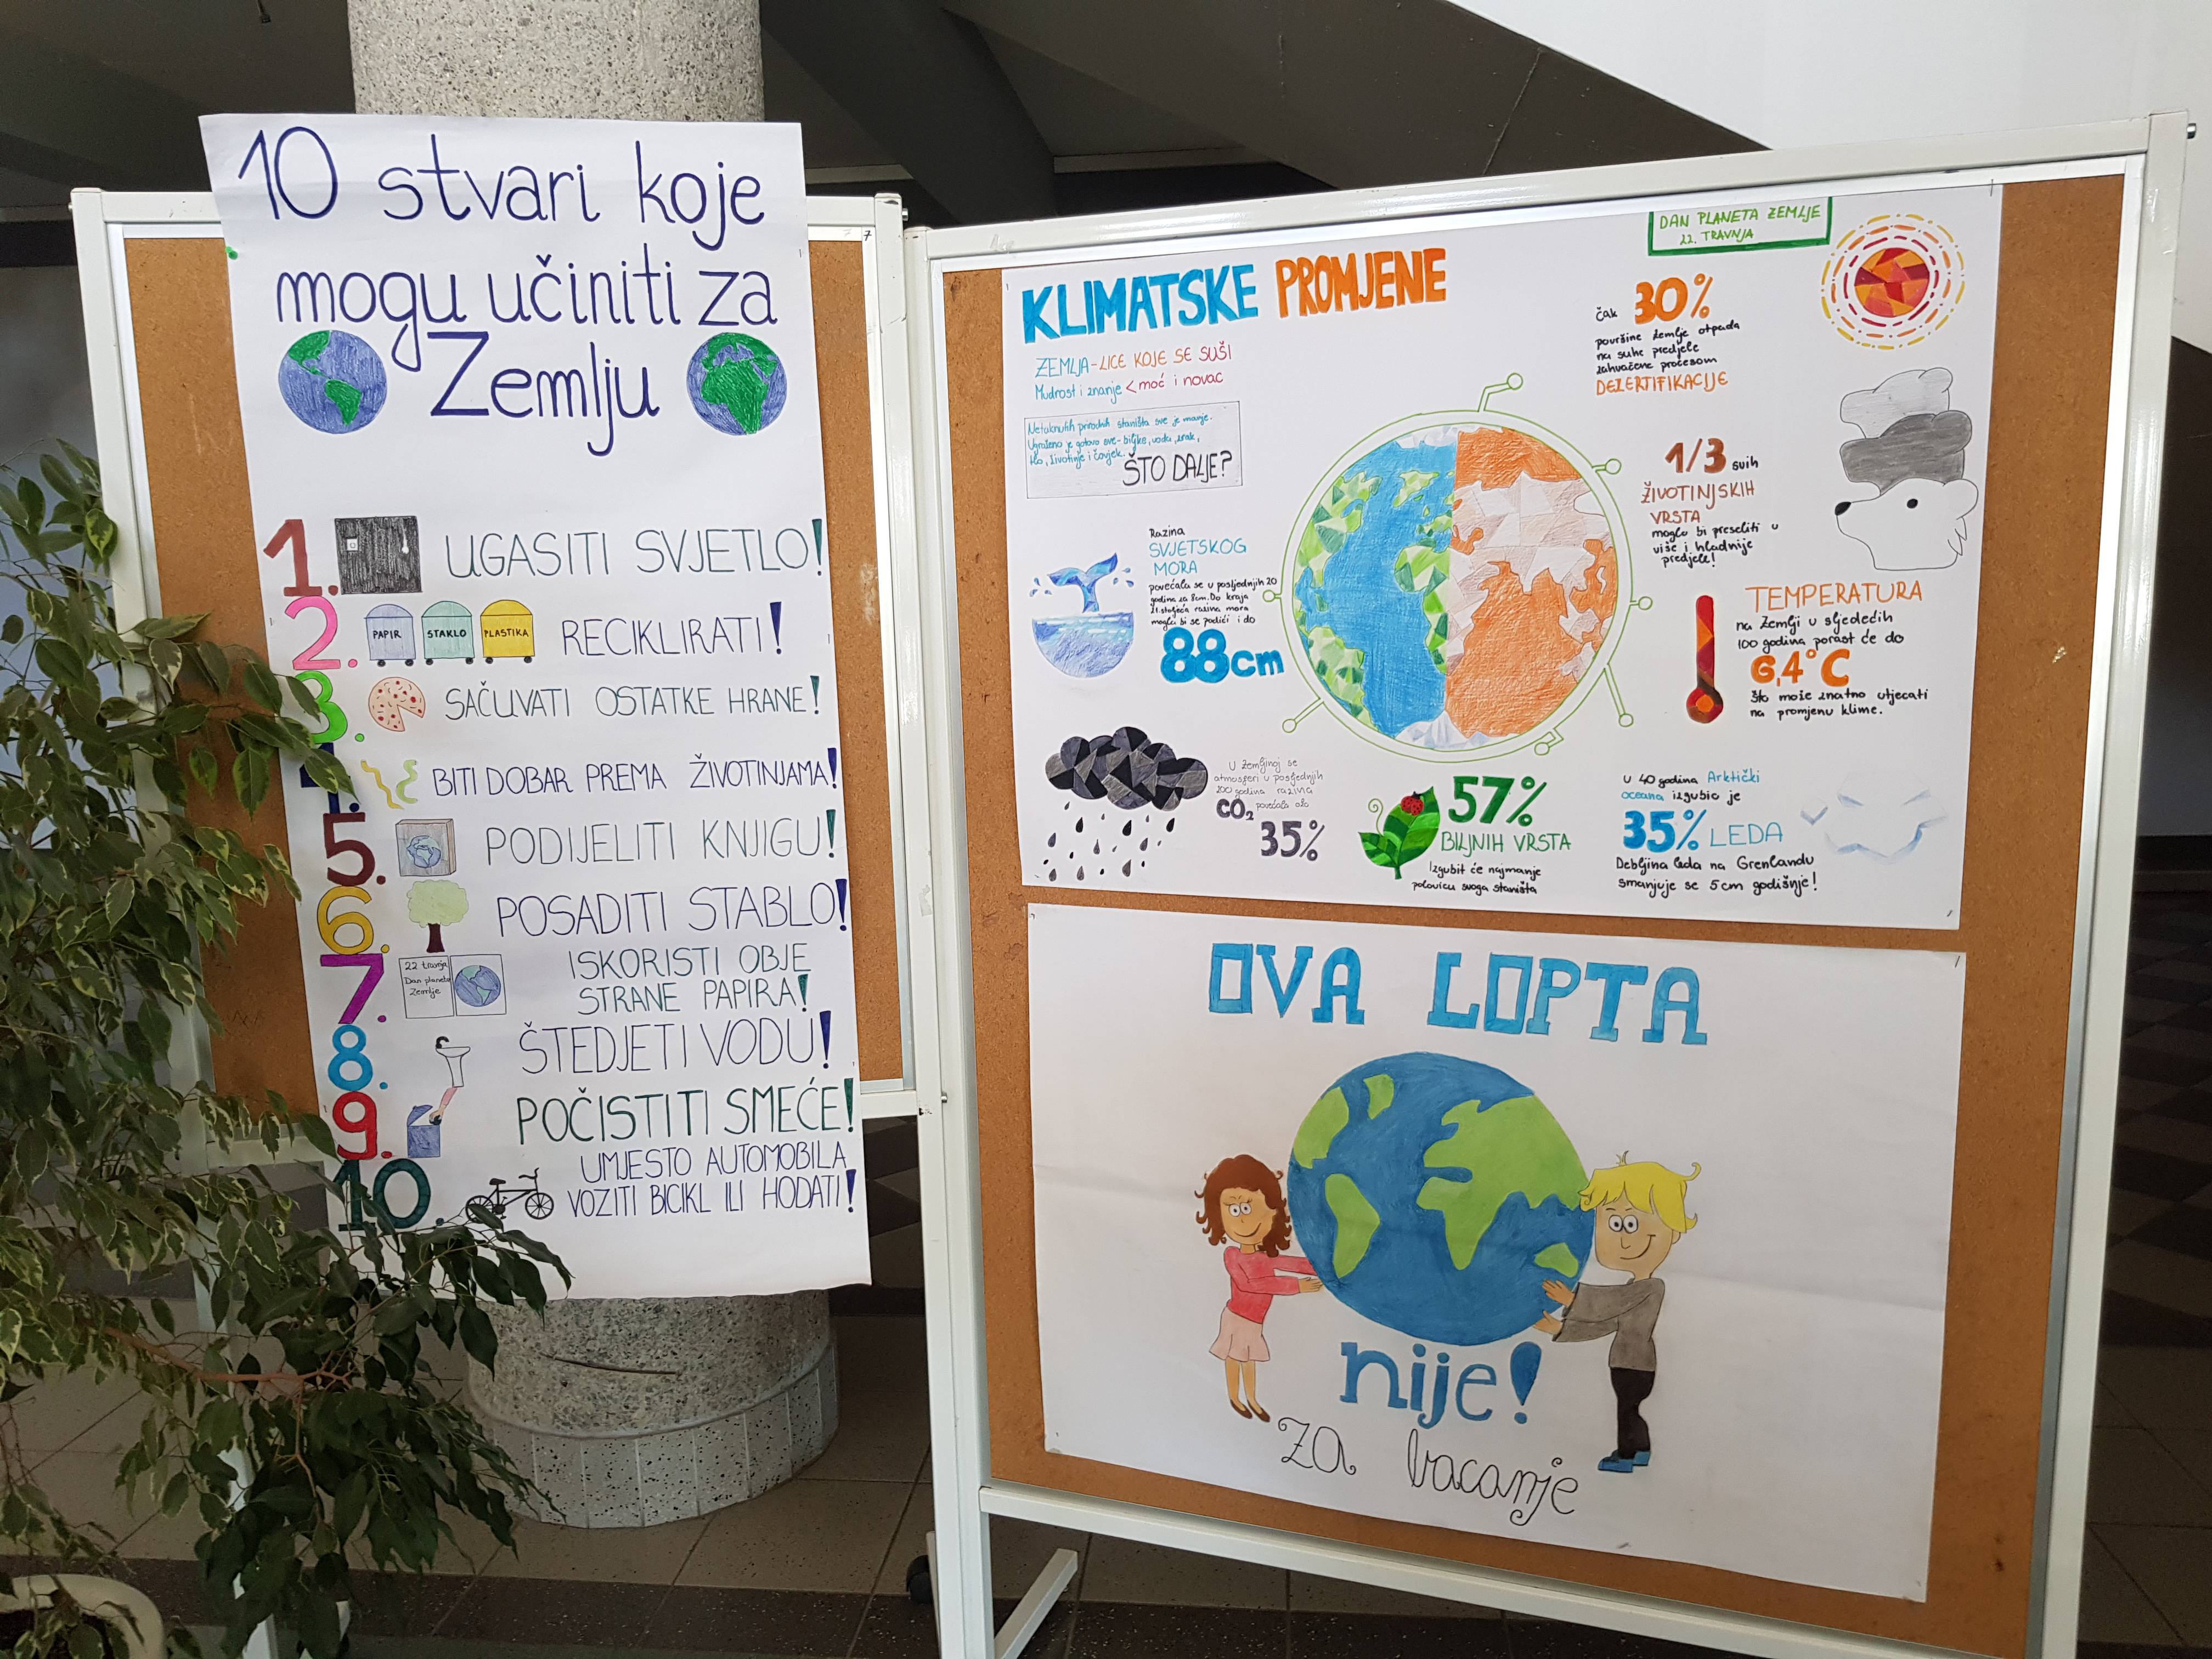 10 stvari koje
mogu učiniti za
Zemlju
1. UGASITI SVJETLO!
2. PAPIR STAKLO PLASTIKA RECIKLIRATI!
3. SAČUVATI OSTATKE HRANE!
4. BITI DOBAR PREMA ŽIVOTINJAMA!
5. PODIJELITI KNJIGU!
6. POSADITI STABLO!
7. ISKORISTI OBJE
STRANE PAPIRA!
22 travnja
Dan planeta
Zemlje
8. ŠTEDJETI VODU!
9. POČISTITI SMEĆE!
10. UMJESTO AUTOMOBILA
VOZITI BICIKL ILI HODATI!
DAN PLANETA ZEMLJE
22. TRAVNJA
KLIMATSKE PROMJENE
ZEMLJA-LICE KOJE SE SUŠI
Mudrost i znanje < moć i novac
Netaknutih prirodnih staništa sve je manje.
Ugroženo je gotovo sve-biljke, voda, zrak,
tlo, životinje i čovjek.
ŠTO DALJE?
čak 30%
površine Zemlje otpada
na suhe predjele
zahvaćene procesom
DEZERTIFIKACIJE
1/3 svih
ŽIVOTINJSKIH
VRSTA
moglo bi preseliti u
više i hladnije
predjele!
Razina
SVJETSKOG
MORA
povećala se u posljednjih 20
godina za 8cm. Do kraja
21. stoljeća razina mora
mogla bi se podići i do
88cm
TEMPERATURA
na Zemlji u sljedećih
100 godina porast će do
6,4°C
što može znatno utjecati
na promjenu klime.
U Zemljinoj se
atmosferi u posljednjih
200 godina razina
CO2 povećala za
35%
57%
BILJNIH VRSTA
Izgubit će najmanje
polovicu svoga staništa
U 40 godina Arktički
oceana izgubio je
35% LEDA
Debljina leda na Grenlandu
smanjuje se 5cm godišnje!
OVA LOPTA
nije!
za bacanje